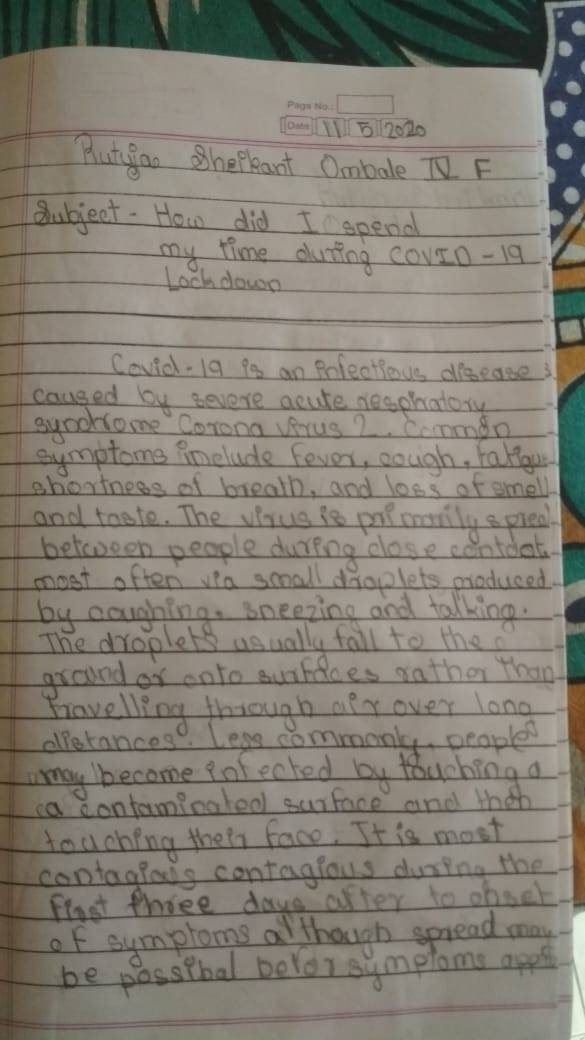 Page No.:
Date 11 5 2020
Rutuja Shrikant Ombale IV F
Subject - How did I spend
my time during COVID-19
Lockdown
Covid-19 is an infectious disease
caused by severe acute respiratory
syndrome Corona virus 2. Common
symptoms include fever, cough, fatigue
shortness of breath, and loss of smell
and taste. The virus is primarily spread
between people during close contact.
most often via small droplets produced
by coughing, sneezing and talking.
The droplets usually fall to the
ground or onto surfaces rather than
travelling through air over long
distances. Less commonly, people
may become infected by touching a
a contaminated surface and then
touching their face. It is most
contagious contagious during the
first three days after to onset
of symptoms although spread may
be possibal befor symptoms